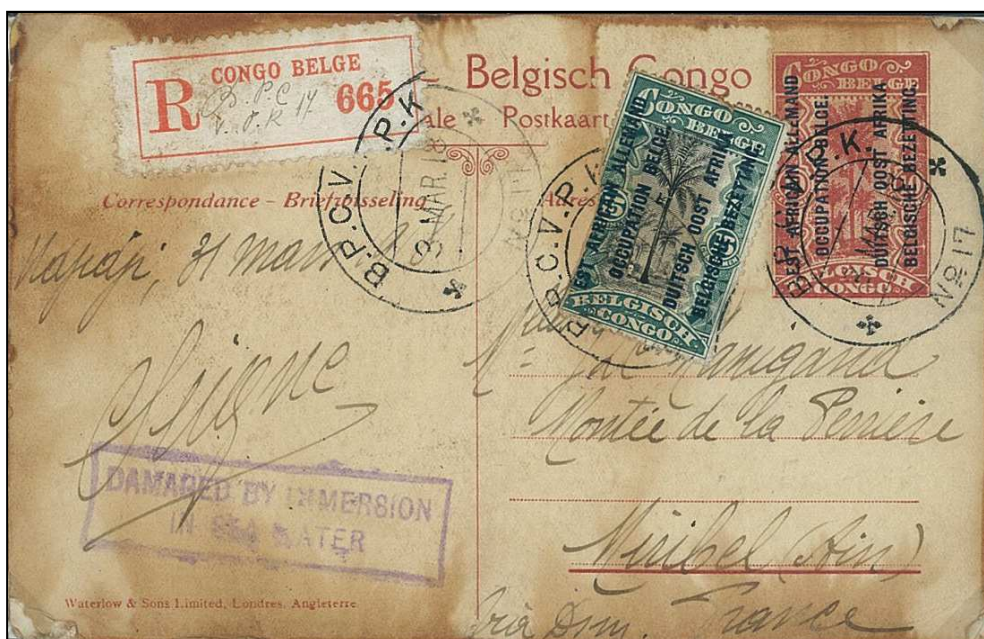 CONGO BELGE
R B.P.C 665
V.P.K 17
Belgisch Congo
ale Postkaart
Correspondance – Briefwisseling
B.P.C.V.P.K
MAR. 18
B.P.C.V.P.K
P.K.
No 17
CONGO BELGE
EST AFRICAIN ALLEMAND
OCCUPATION BELGE.
DUITSCH OOST AFRIKA
BELGISCHE BEZETTING.
BELGISCH CONGO
5
CONGO BELGE
EST AFRICAIN ALLEMAND
OCCUPATION BELGE.
DUITSCH OOST AFRIKA
BELGISCHE BEZETTING.
BELGISCH CONGO
31 mars
Montée de la
Miribel (Ain)
France
DAMAGED BY IMMERSION
IN SEA WATER
Waterlow & Sons Limited, Londres. Angleterre